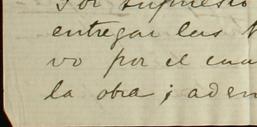 Por supuesto
entregar las
vo por el cua
la obra; adem